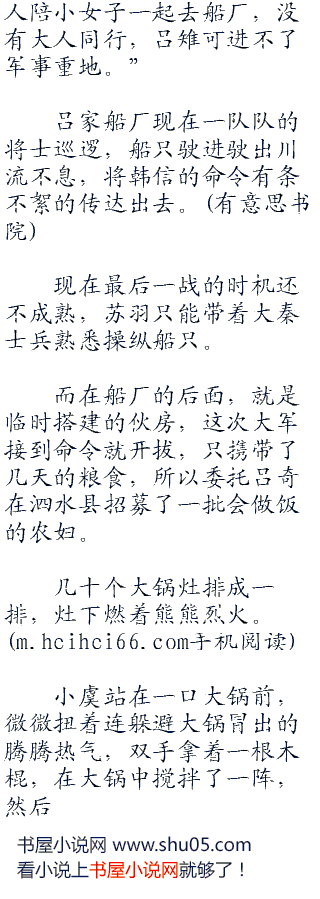 人陪小女子一起去船厂，没
有大人同行，吕雉可进不了
军事重地。”
吕家船厂现在一队队的
将士巡逻，船只驶进驶出川
流不息，将韩信的命令有条
不絮的传达出去。(有意思书
院)
现在最后一战的时机还
不成熟，苏羽只能带着大秦
士兵熟悉操纵船只。
而在船厂的后面，就是
临时搭建的伙房，这次大军
接到命令就开拔，只携带了
几天的粮食，所以委托吕奇
在泗水县招募了一批会做饭
的农妇。
几十个大锅灶排成一
排，灶下燃着熊熊烈火。
(m.hcihci66.com手机阅读)
小虞站在一口大锅前，
微微扭着连躲避大锅冒出的
腾腾热气，双手拿着一根木
棍，在大锅中搅拌了一阵，
然后
书屋小说网 www.shu05.com
看小说上书屋小说网就够了！